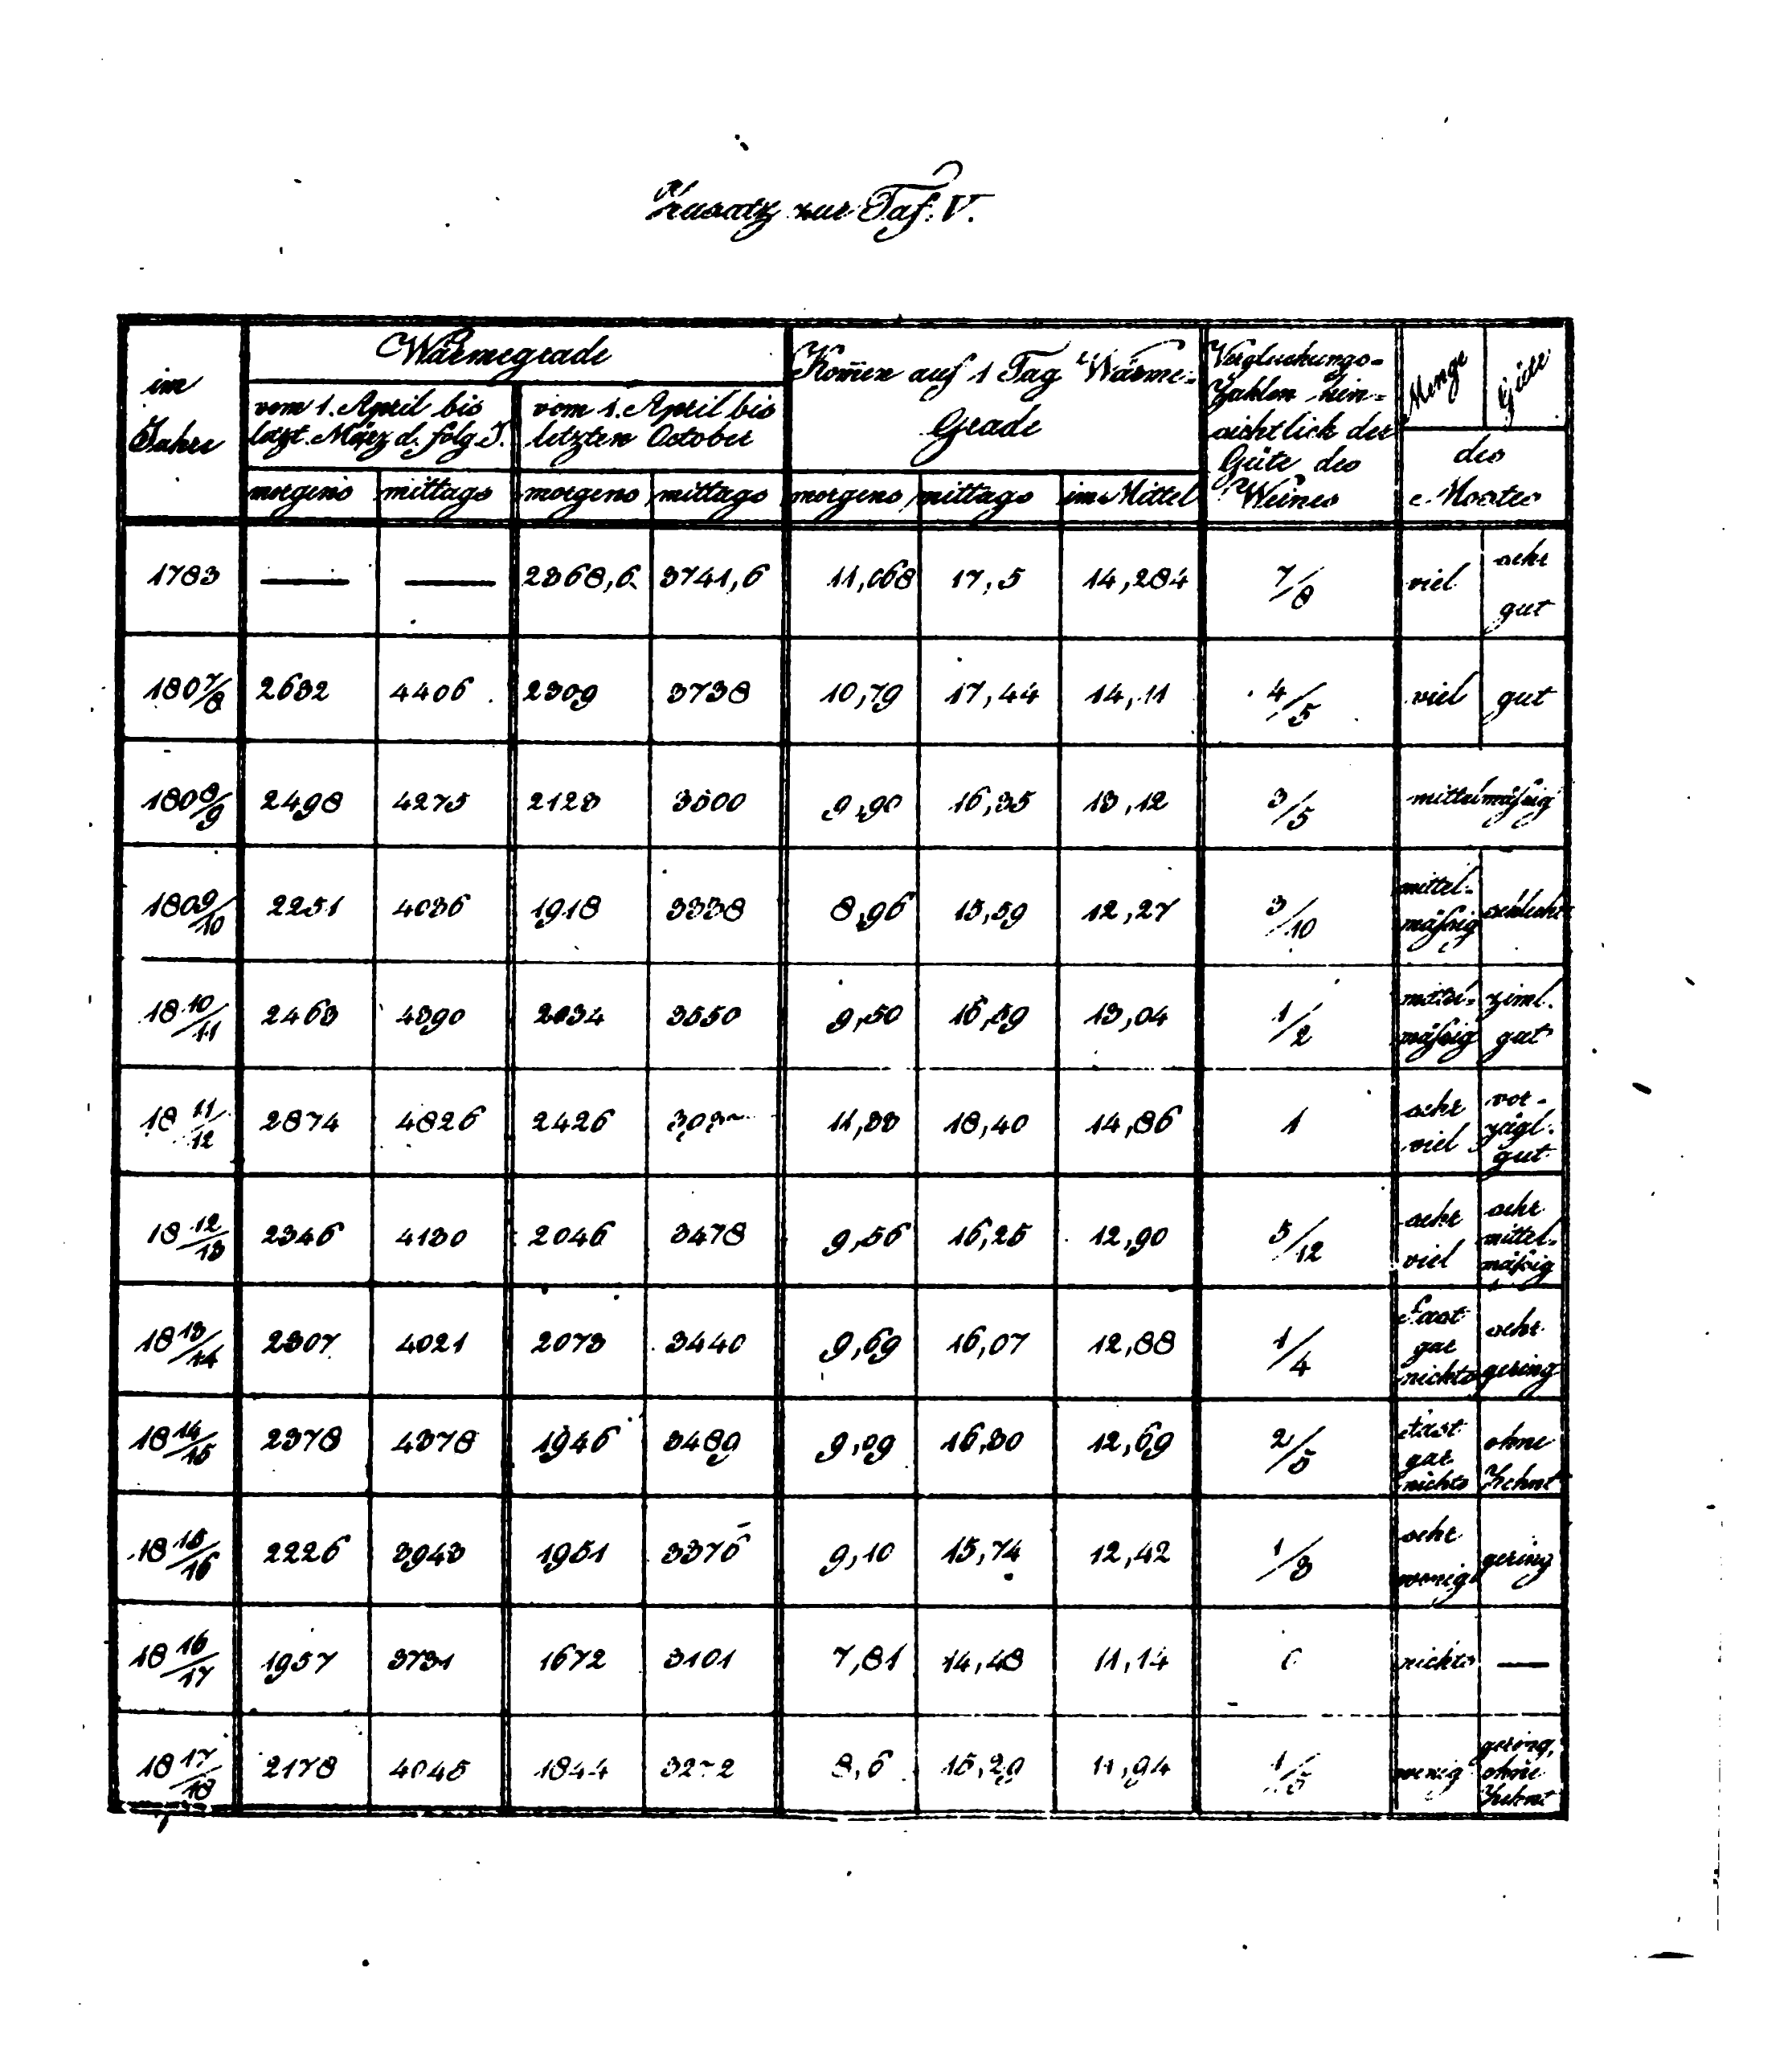 Zusatz zur Taf. V.
im Jahre | Wärmegrade | Kom̄en auf 1 Tag Wärme-Grade | Vergleichungs-Zahlen hinsichtlich der Güte des Weines | Menge | Güte
vom 1. April bis letzt. März d. folg. J. | vom 1. April bis letzten October | des Mostes
morgens | mittags | morgens | mittags | morgens | mittags | im Mittel
1783 | — | — | 2368,6 | 3741,6 | 11,068 | 17,5 | 14,284 | 7/8 | viel | sehr gut
1807/8 | 2632 | 4406 | 2309 | 3738 | 10,79 | 17,44 | 14,11 | 4/5 | viel | gut
1808/9 | 2498 | 4275 | 2123 | 3500 | 9,90 | 16,35 | 13,12 | 3/5 | mittelmäßig
1809/10 | 2251 | 4036 | 1918 | 3338 | 8,96 | 15,59 | 12,27 | 3/10 | mittel-mäßig | schlecht
1810/11 | 2463 | 4390 | 2034 | 3550 | 9,50 | 16,59 | 13,04 | 1/2 | mittel-mäßig | ziml. gut
1811/12 | 2874 | 4826 | 2426 | 11,33 | 18,40 | 14,86 | 1 | sehr viel | vor-zügl. gut
1812/13 | 2346 | 4130 | 2046 | 3478 | 9,56 | 16,25 | 12,90 | 5/12 | sehr viel | sehr mittel-mäßig
1813/14 | 2307 | 4021 | 2073 | 3440 | 9,69 | 16,07 | 12,88 | 1/4 | Fast gar nichts | sehr gering
1814/15 | 2378 | 4378 | 1946 | 3489 | 9,09 | 16,30 | 12,69 | 2/5 | Fast gar nichts | ohne Zehnt
1815/16 | 2226 | 3943 | 1951 | 3376 | 9,10 | 15,74 | 12,42 | 1/3 | sehr wenig | gering
1816/17 | 1957 | 3731 | 1672 | 3101 | 7,81 | 14,48 | 11,14 | 0 | nichts | —
1817/18 | 2178 | 4045 | 1844 | 3272 | 8,6 | 15,29 | 11,94 | 1/5 | wenig | gering, ohne Zehnt